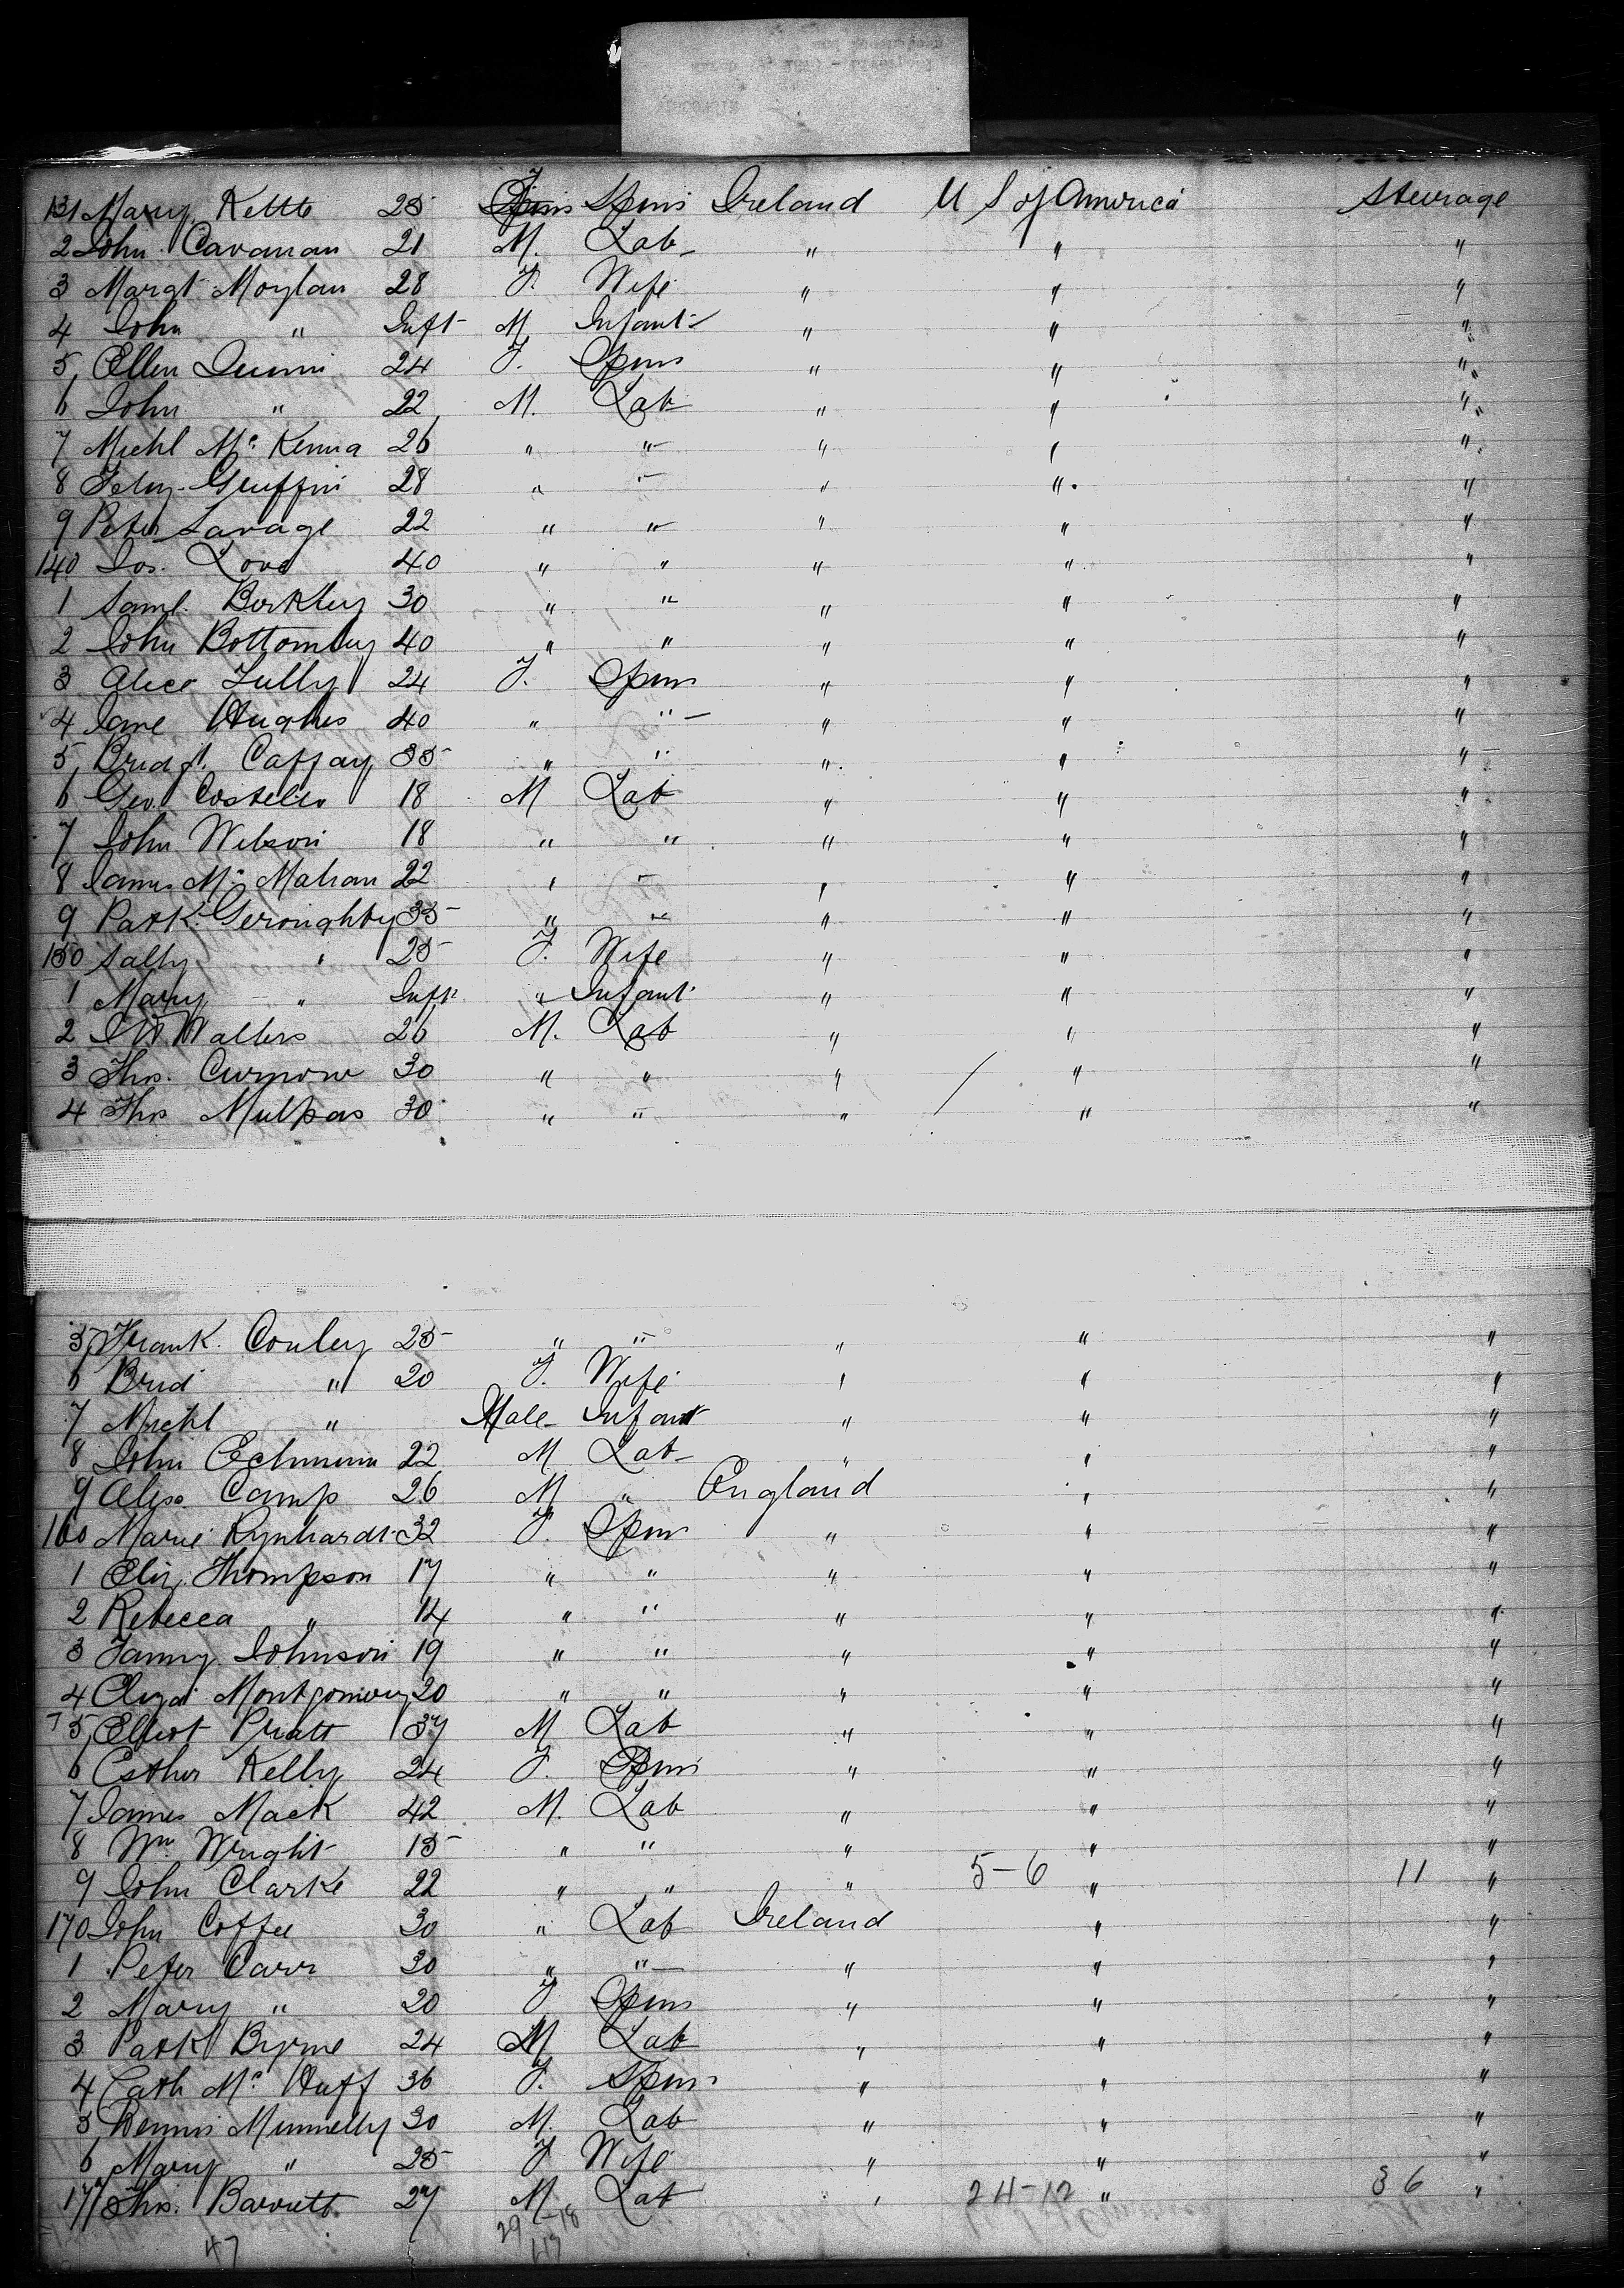 131 Mary Kettle 25 F Spins Ireland U S of America Steerage
2 John Cavanan 21 M. Lab " " "
3 Margt Moylan 28 F. Wife " " "
4 John " Inft M Infant " " "
5 Ellen Quinn 24 F. Spins " " "
6 John " 22 M. Lab " " "
7 Michl Mc Kenna 26 " " " " "
8 Griffin 28 " " " " "
9 Peter Savage 22 " " " " "
140 Jos. Love 40 " " " " "
1 Saml. Berkley 30 " " " " "
2 John Bottomley 40 " " " " "
3 Alice Tully 24 F. Spins " " "
4 Jane Hughes 40 " " " " "
5 Bridgt. Caffay 35 " " " " "
6 Geo. Costello 18 M Lab " " "
7 John Wilson 18 " " " " "
8 James Mc Mahan 22 " " " " "
9 Patk. Geroughty 35 " " " " "
150 Sally " 25 F. Wife " " "
1 Mary " Inft. " Infant " " "
2 J W Walters 26 M. Lab " " "
3 Thos. Curnow 30 " " " " "
4 Thos Mulpas 30 " " " " "
5 Frank. Conley 25 " " " " "
6 Brid " 20 F. Wife " " "
7 Michl " Male Infant " " "
8 John 22 M Lab " " "
9 Camp 26 M " England " "
160 Marie Rynhardt 32 F. Spins " " "
1 Eliz. Thompson 17 " " " " "
2 Rebecca " 14 " " " " "
3 Fanny Johnson 19 " " " " "
4 Eliza Montgomery 20 " " " " "
5 Elliot Pratt 37 M Lab " " "
6 Esther Kelly 24 F. Spins " " "
7 James Mack 42 M. Lab " " "
8 Wm. Wright 15 " " " " "
9 John Clarke 22 " " " 5-6 " 11 "
170 John Coffee 30 " Lab Ireland " "
1 Peter Carr 30 " " " " "
2 Mary " 20 F Spins " " "
3 Patk Byrne 24 M Lab " " "
4 Cath Mc Huff 36 F. Spins " " "
5 Dennis Munnelly 30 M. Lab " " "
6 Mary " 25 F Wife " " "
177 Thos. Barrett 27 M Lab " 24-12 " 36 "
47 29-18